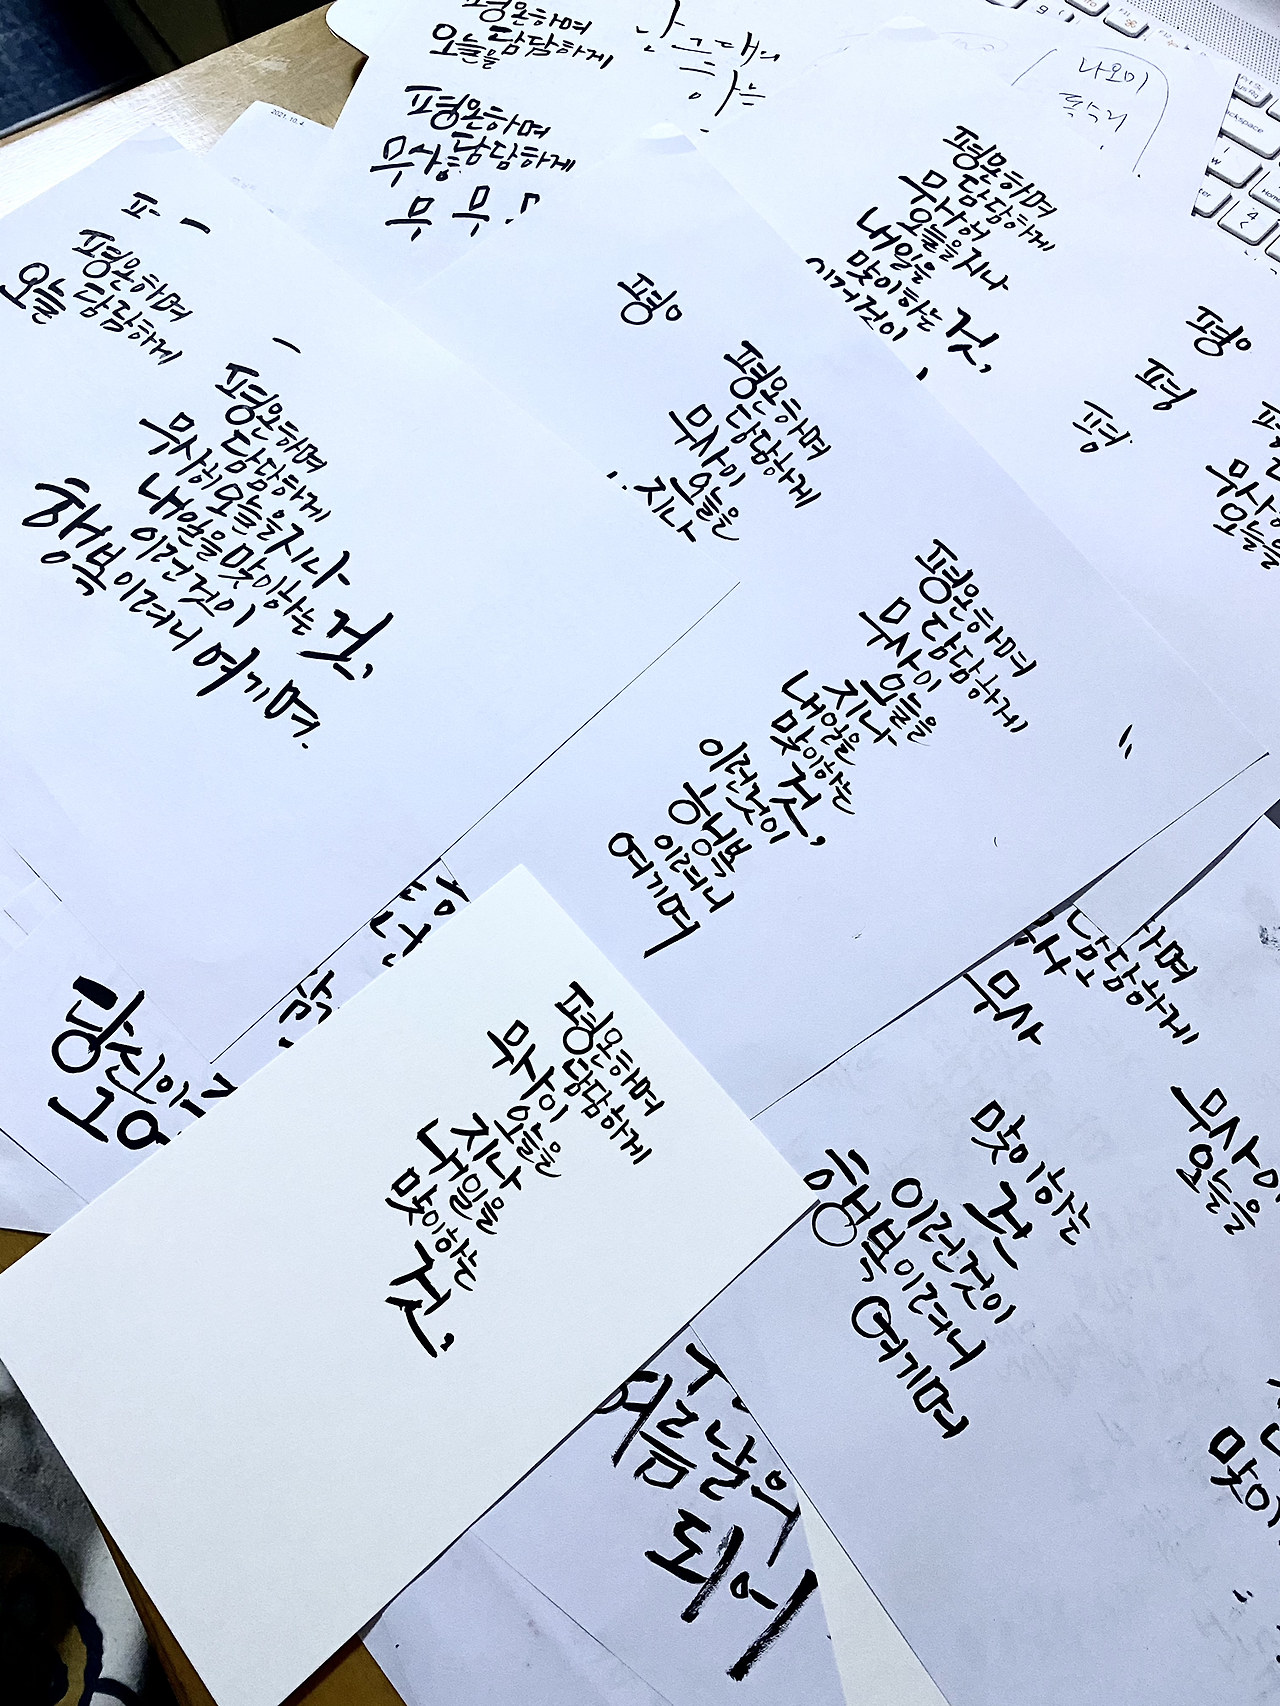 평온하며
담담하게
오늘을
평온하며
담담하게
무사히
무 무
난 그대의
하는
나오미
2021.10.4
평온하며
담담하게
무사히
오늘을 지나
내일을
맞이하는 것,
이거것이
평온하며
담담하게
오늘
평온하며
담담하게
무사히 오늘을 지나
내일을 맞이하는 것,
이런 것이
행복이려니 여기며.
평
평온하며
담담하게
무사이
오늘을
지나
평
평
평
무사
오늘을
평온하며
담담하게
무사이
오늘을
지나
내일을
맞이하는
것,
이런것이
행복
이려니
여기며
당신이
평온하며
담담하게
무사이
오늘을
지나
내일을
맞이하는
것,
하며
담담하게
무사
무사이
오늘을
맞이하는
것
이런것이
행복이려니
여기며
맞이
날의
여름
되어
Backspace
Home